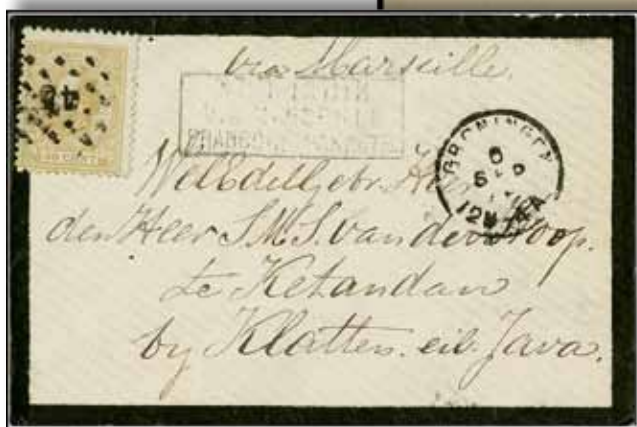 via Marseille.
GRONINGEN
6
SEP
WelEdelGebr. Heer
den Heer S.M.S. van der
te Ketandan
by Klatten. eil. Java.